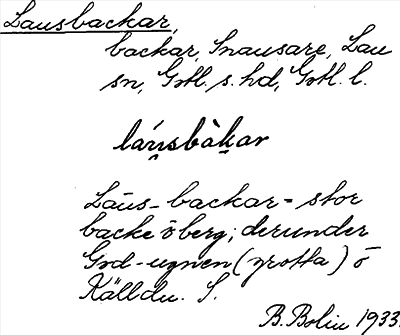 Lausbackar,
backar, Snausare, Lau
sn, Gotl. s. hd, Gotl. l.
láu̯sbàk̯ar
Laus-backar = stor
backe ö berg; derunder
Grd-ugnen (grotta) ö
Källdu. S.
B. Bolin 1933.